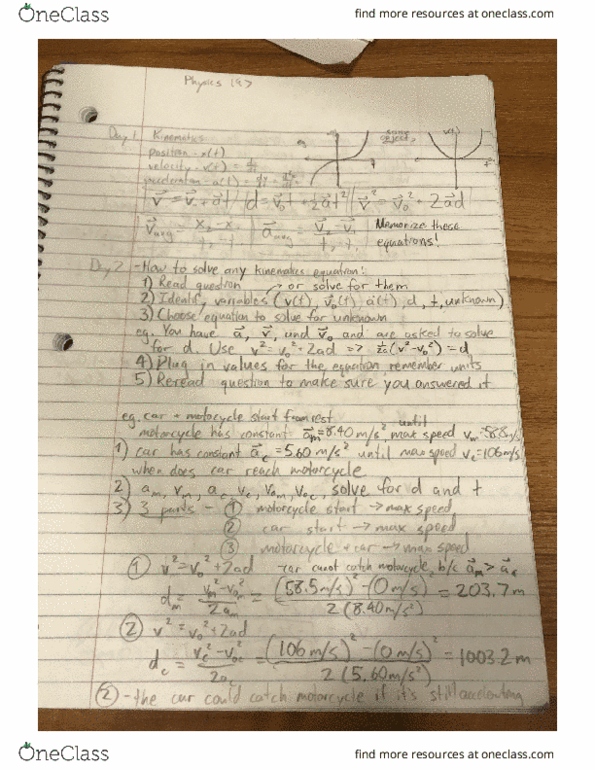 OneClass
find more resources at oneclass.com
Physics
Day 1 Kinematics
position - x(t)
velocity - v(t) =
acceleration - a(t) =
same object?
v⃗ = v⃗₀ + a⃗t | d = v⃗₀t + ½a⃗t² | v⃗² = v⃗₀² + 2a⃗d
v⃗avg = x₂-x₁ / t₂-t₁ | a⃗avg = v⃗₂-v⃗₁ / t₂-t₁ Memorize these
equations!
Day 2 - How to solve any kinematics equation!
1) Read question → or solve for them
2) Identify variables (v(t), v⃗₀(t), a(t), d, t, unknown)
3) Choose equation to solve for unknown
eg. You have a⃗, v⃗, and v⃗₀ and are asked to solve
for d. Use v² = v₀² + 2ad => 1/2a (v² - v₀²) = d
4) Plug in values for the equation remember units
5) Reread question to make sure you answered it
eg. car + motocycle start from rest
motorcycle has constant a⃗m = 8.40 m/s², until max speed vm = 58.8 m/s
1) car has constant a⃗c = 5.60 m/s² until max speed vc = 106 m/s
when does car reach motorcycle
2) am, vm, ac, vc, vom, voc, solve for d and t
3) 3 parts - ① motorcycle start → max speed
② car start → max speed
③ motorcycle + car → max speed
① v² = v₀² + 2ad - car canot catch motorcycle, b/c a⃗m > a⃗c
dm = vm² - vom² / 2am = (58.5 m/s)² - (0 m/s)² / 2(8.40 m/s²) = 203.7 m
② v² = v₀² + 2ad
dc = vc² - voc² / 2ac = (106 m/s)² - (0 m/s)² / 2(5.60 m/s²) = 1003.2 m
② - the car could catch motorcycle if it's still accelerating
OneClass
find more resources at oneclass.com